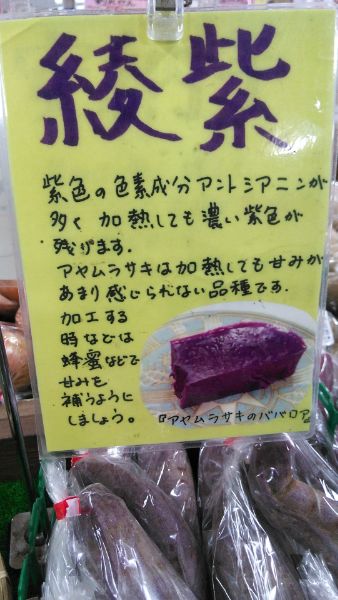 綾紫
紫色の色素成分アントシアニンが
多く加熱しても濃い紫色が
残ります。
アヤムラサキは加熱しても甘みが
あまり感じられない品種です.
加工する
時などは
蜂蜜などで
甘みを
補うように
しましょう。
『アヤムラサキのババロア』